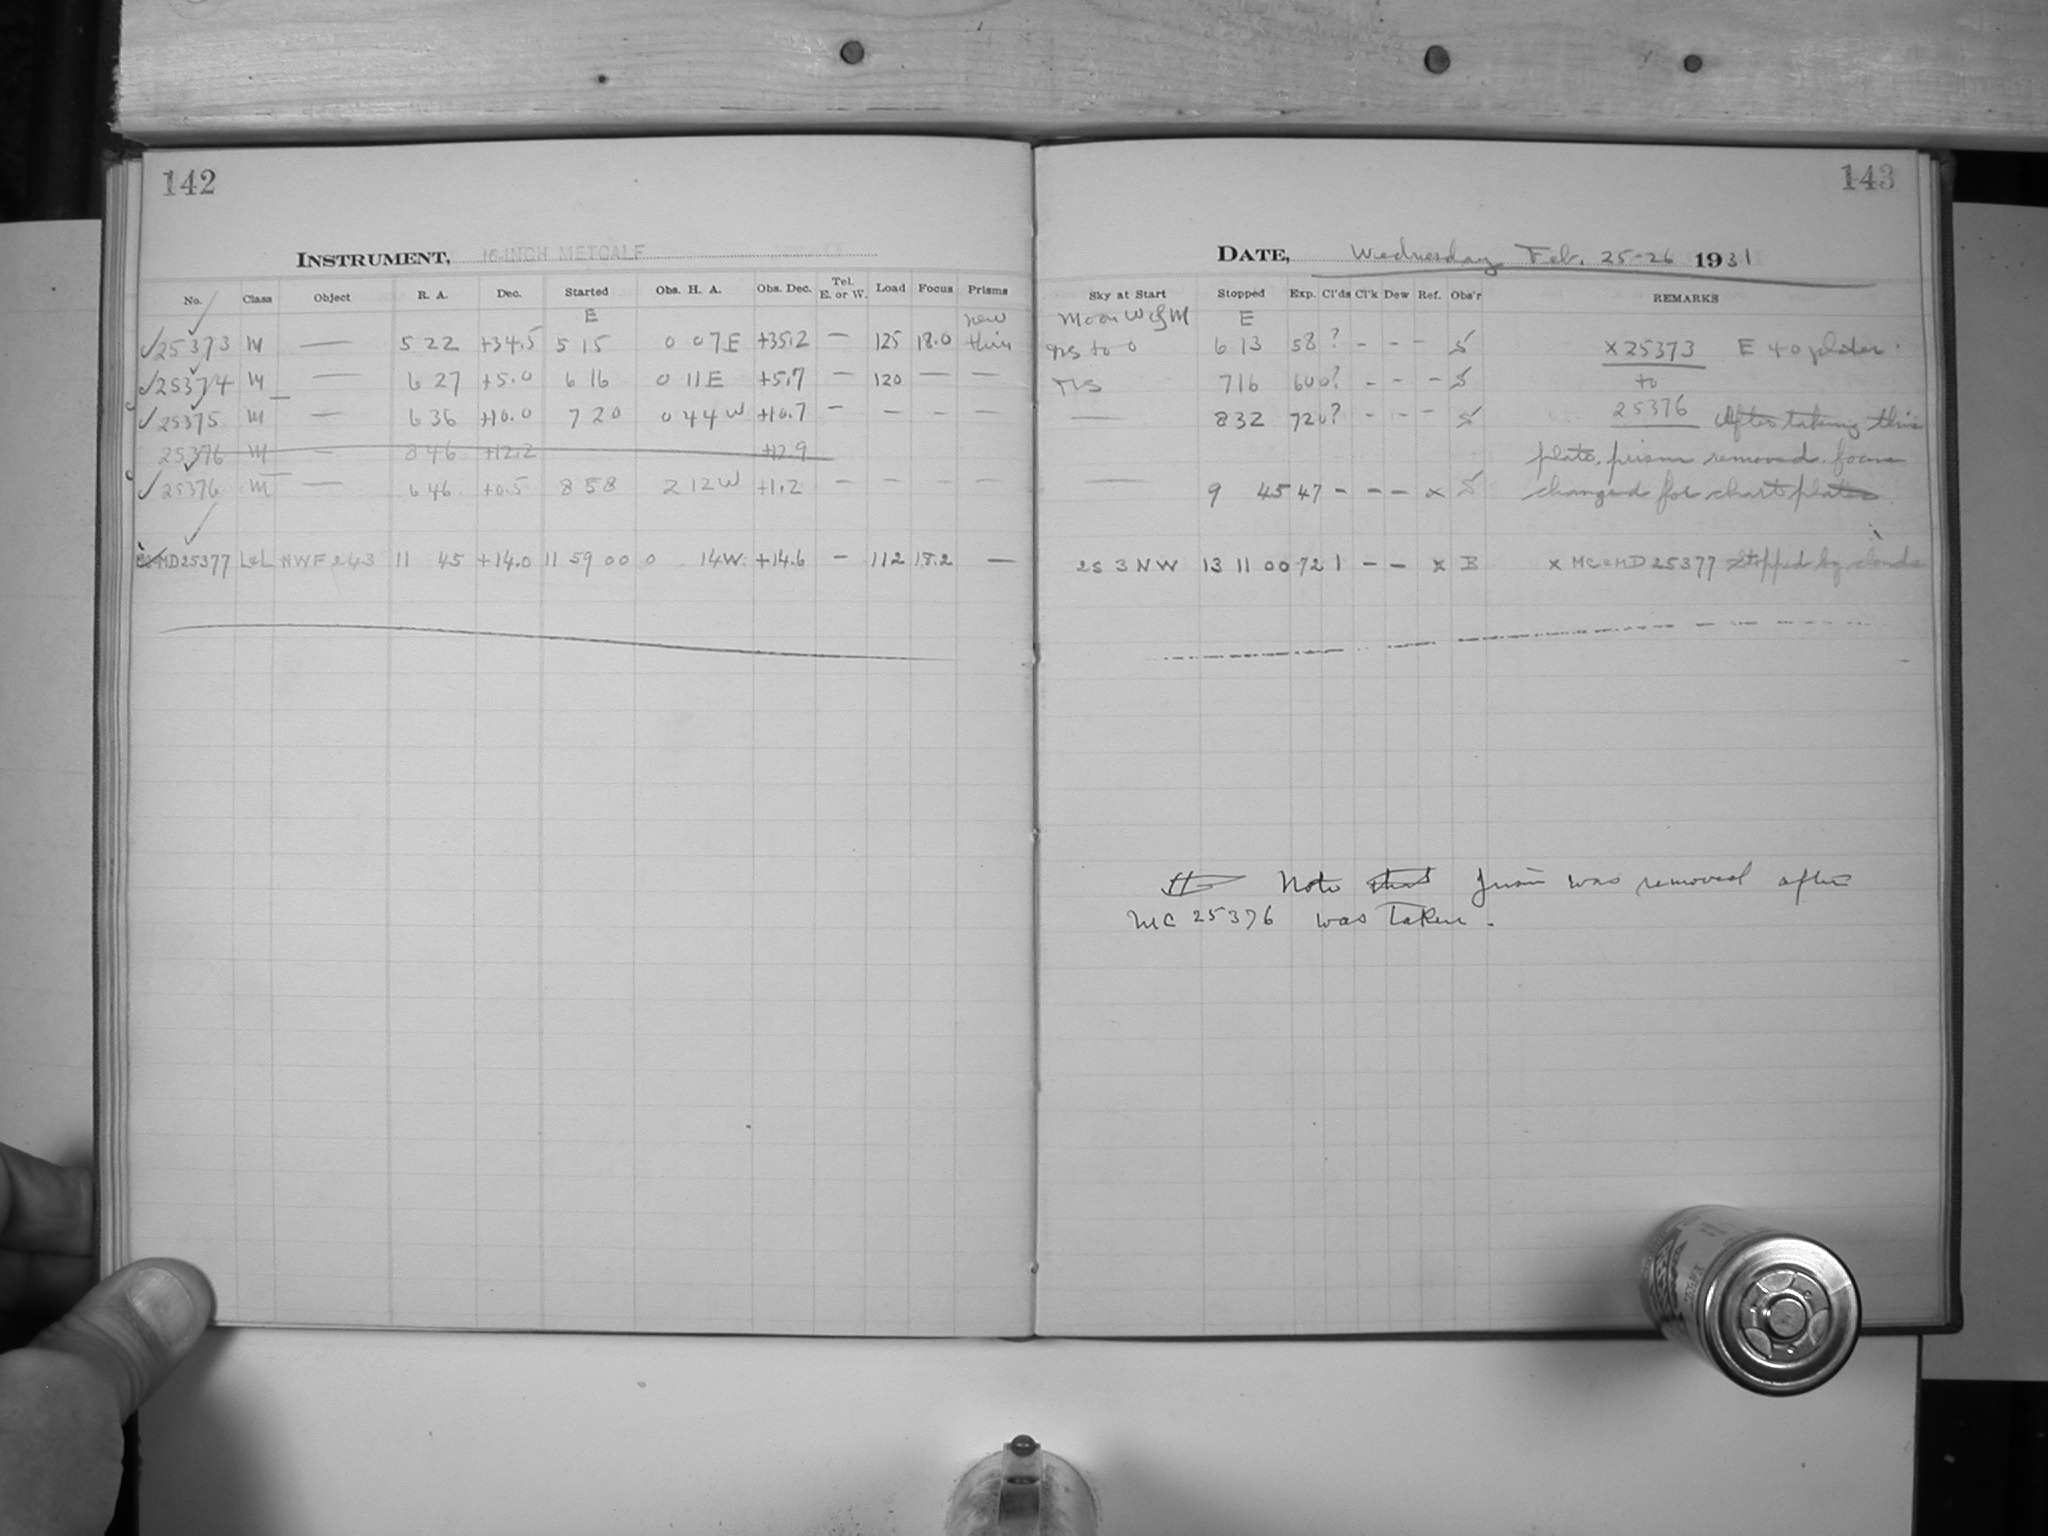 142
INSTRUMENT, 16-INCH METCALF
No. Class Object R. A. Dec. Started Obs. H. A. Obs. Dec. Tel. E. or W. Load Focus Prisms
E new
25373 M — 5 22 +34.5 5 15 0 07E +35.2 — 125 18.0 thin
25374 M — 6 27 +5.0 6 16 0 11E +5.7 — 120 — —
25375 M — 6 36 +10.0 7 20 0 44W +10.7 — — — —
25376 M — 8 46 +12.2 +12.9
25376 M — 6 46 +0.5 8 58 2 12W +1.2 — — — —
MD25377 L&L NWF243 11 45 +14.0 11 59 00 0 14W. +14.6 — 112 18.2 —
143
DATE, Wednesday Feb. 25-26 1931
Sky at Start Stopped Exp. Cl'ds Cl'k Dew Ref. Obs'r REMARKS
Moon W of M E
ns to 0 6 13 58 ? - - - S x25373 E 40 plates.
ns 7 16 60 0? - - - S to
— 8 32 72 0? - - - S 25376 After taking this
plate, prism removed. focus
— 9 45 47 - - - x S changed for chart plates.
25 3 NW 13 11 00 72 1 - - x B x MC&MD25377 Stopped by clouds
Note that Prism was removed after
MC 25376 was taken.